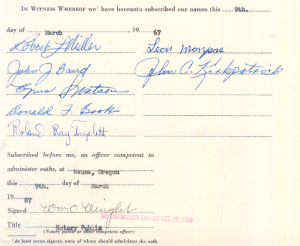 IN WITNESS WHEREOF we have hereunto subscribed our names this 9th.
day of March, 19 67
Robert L Miller Leon Morgan
John J Baird John C. Kirkpatrick
Watson
Donald F. Book
Roland Ray Triplett
Subscribed before me, an officer competent to
administer oaths, at
this 9th. day of March
19 67
Signed Wm O. Wright
Title Notary Public
(Notary public or other competent officer)
¹ At least seven signers, none of whom should administer the oath